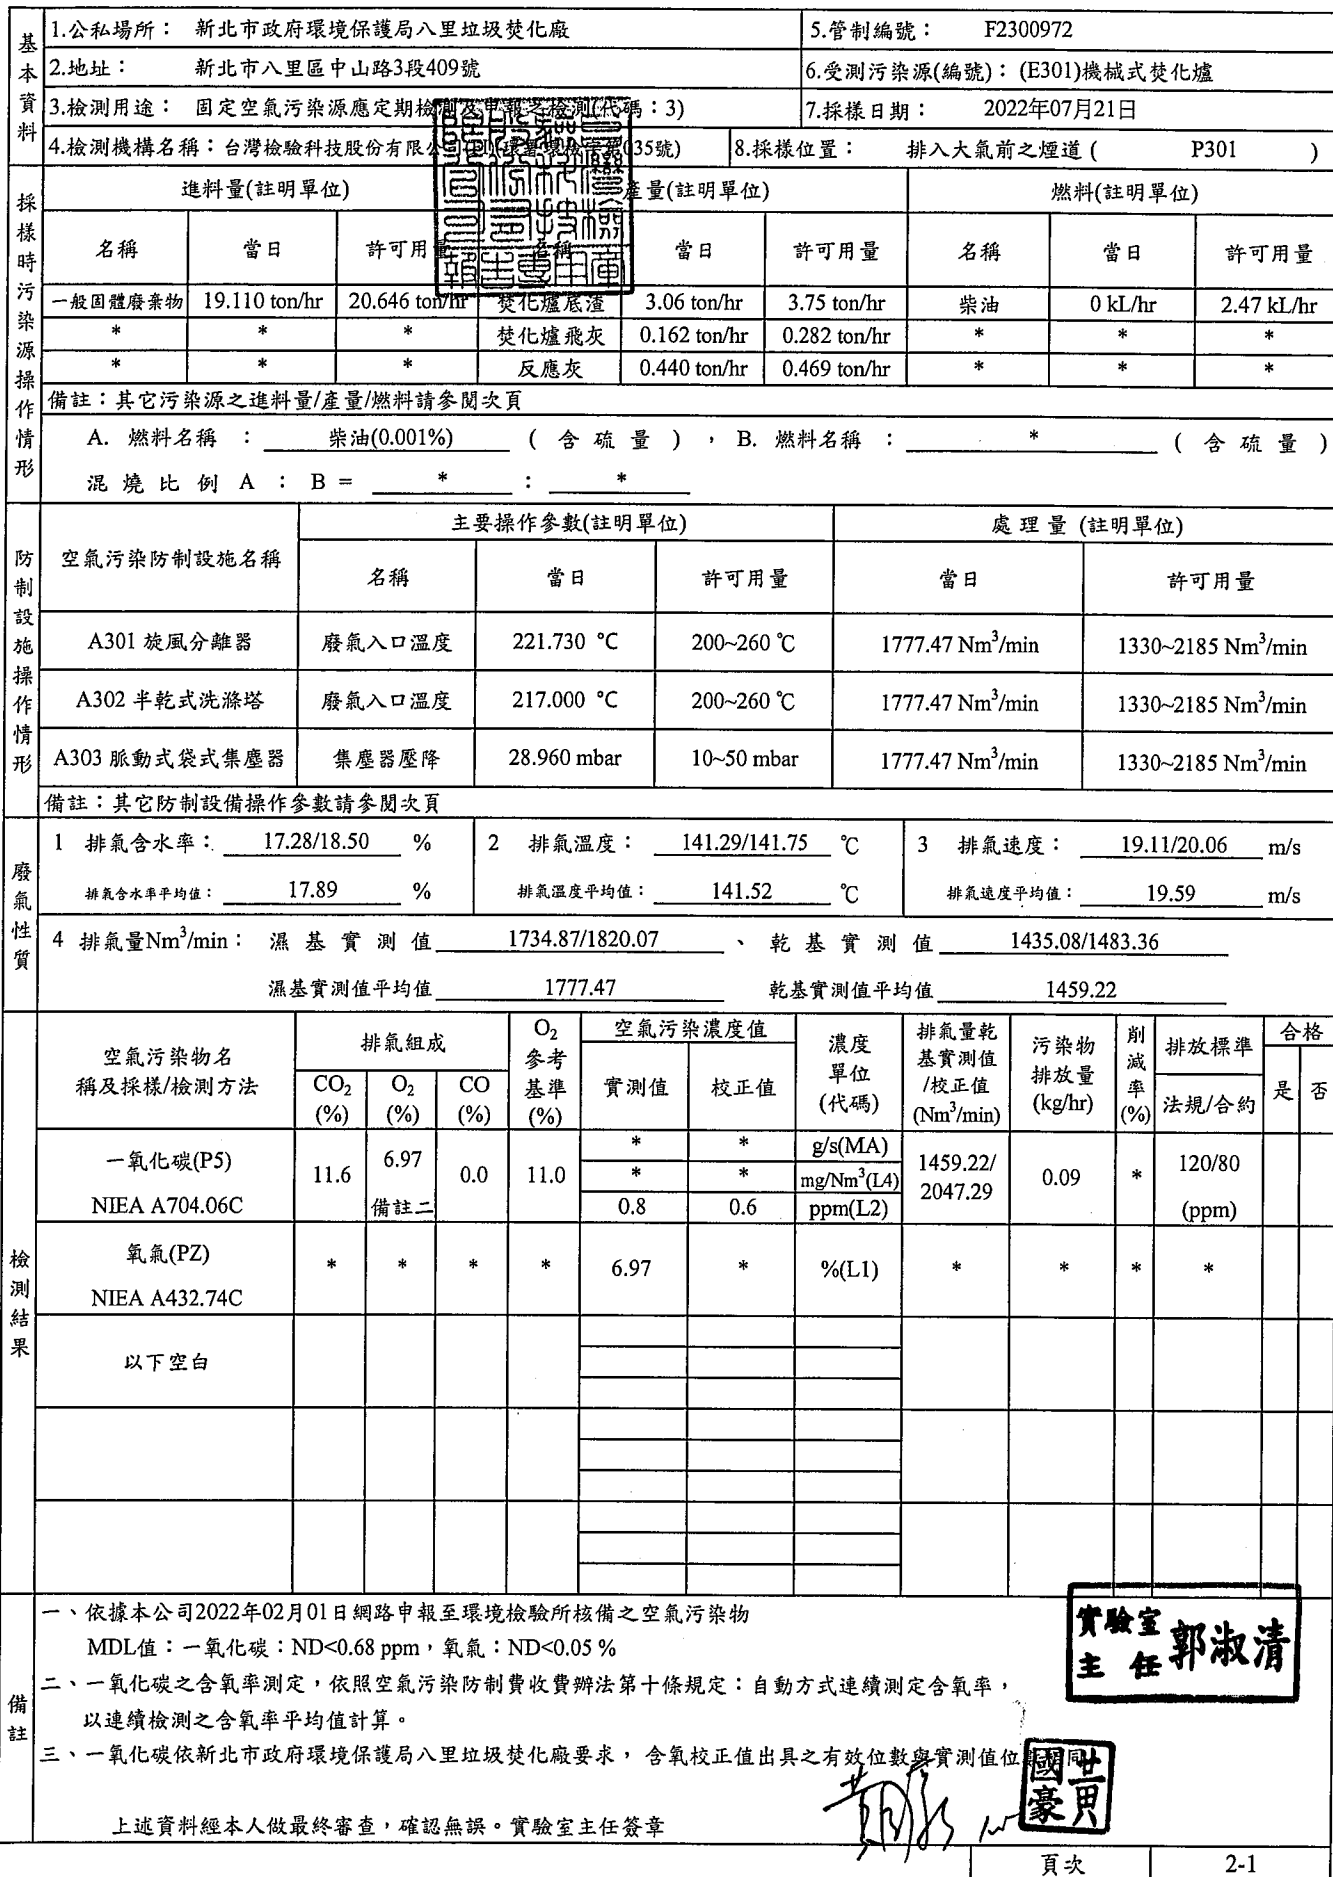 基本資料
1.公私場所： 新北市政府環境保護局八里垃圾焚化廠 5.管制編號： F2300972
2.地址： 新北市八里區中山路3段409號 6.受測污染源(編號)： (E301)機械式焚化爐
3.檢測用途： 固定空氣污染源應定期檢測及申報之檢測(代碼：3) 7.採樣日期： 2022年07月21日
4.檢測機構名稱：台灣檢驗科技股份有限公司 035號) 8.採樣位置： 排入大氣前之煙道 ( P301 )
採樣時污染源操作情形
進料量(註明單位) 產量(註明單位) 燃料(註明單位)
名稱 當日 許可用量 名稱 當日 許可用量 名稱 當日 許可用量
一般固體廢棄物 19.110 ton/hr 20.646 ton/hr 焚化爐底渣 3.06 ton/hr 3.75 ton/hr 柴油 0 kL/hr 2.47 kL/hr
* * * 焚化爐飛灰 0.162 ton/hr 0.282 ton/hr * * *
* * * 反應灰 0.440 ton/hr 0.469 ton/hr * * *
備註：其它污染源之進料量/產量/燃料請參閱次頁
A. 燃料名稱 ： 柴油(0.001%) ( 含硫量 ) ， B. 燃料名稱 ： * ( 含硫量 )
混燒比例 A ： B = * ： *
防制設施操作情形
空氣污染防制設施名稱 主要操作參數(註明單位) 處理量 (註明單位)
名稱 當日 許可用量 當日 許可用量
A301 旋風分離器 廢氣入口溫度 221.730 ℃ 200~260 ℃ 1777.47 Nm³/min 1330~2185 Nm³/min
A302 半乾式洗滌塔 廢氣入口溫度 217.000 ℃ 200~260 ℃ 1777.47 Nm³/min 1330~2185 Nm³/min
A303 脈動式袋式集塵器 集塵器壓降 28.960 mbar 10~50 mbar 1777.47 Nm³/min 1330~2185 Nm³/min
備註：其它防制設備操作參數請參閱次頁
廢氣性質
1 排氣含水率： 17.28/18.50 % 2 排氣溫度： 141.29/141.75 ℃ 3 排氣速度： 19.11/20.06 m/s
排氣含水率平均值： 17.89 % 排氣溫度平均值： 141.52 ℃ 排氣速度平均值： 19.59 m/s
4 排氣量Nm³/min： 濕基實測值 1734.87/1820.07 、 乾基實測值 1435.08/1483.36
濕基實測值平均值 1777.47 乾基實測值平均值 1459.22
檢測結果
空氣污染物名稱及採樣/檢測方法 排氣組成 O₂參考基準(%) 空氣污染濃度值 濃度單位(代碼) 排氣量乾基實測值/校正值(Nm³/min) 污染物排放量(kg/hr) 削減率(%) 排放標準 合格
CO₂(%) O₂(%) CO(%) 實測值 校正值 法規/合約 是 否
* * g/s(MA)
一氧化碳(P5) 11.6 6.97 0.0 11.0 * * mg/Nm³(L4) 1459.22/2047.29 0.09 * 120/80
NIEA A704.06C 備註二 0.8 0.6 ppm(L2) (ppm)
氧氣(PZ) * * * * 6.97 * %(L1) * * * *
NIEA A432.74C
以下空白
備註
一、依據本公司2022年02月01日網路申報至環境檢驗所核備之空氣污染物
MDL值：一氧化碳：ND<0.68 ppm，氧氣：ND<0.05 %
二、一氧化碳之含氧率測定，依照空氣污染防制費收費辦法第十條規定：自動方式連續測定含氧率，
以連續檢測之含氧率平均值計算。
三、一氧化碳依新北市政府環境保護局八里垃圾焚化廠要求， 含氧校正值出具之有效位數與實測值位 同
上述資料經本人做最終審查，確認無誤。實驗室主任簽章
實驗室主任 郭淑清
黃國豪
頁次 2-1